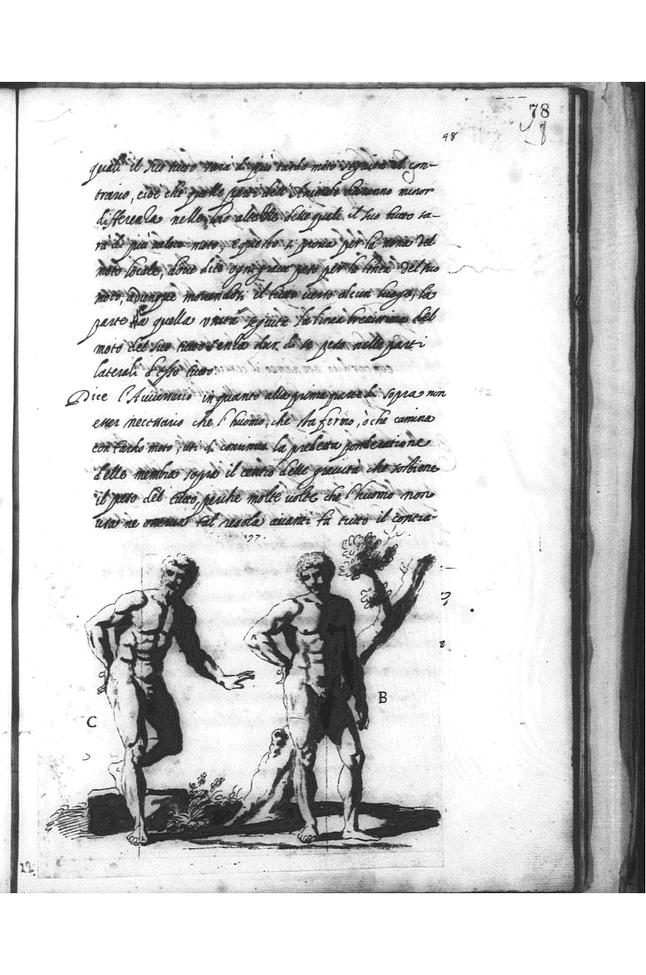 78
48
quali il suo tutto sarà di più tardo moto seguita il con-
trario, cioè che quelle parti dell'Animale haranno minor
differenza nelle loro altezze delle quali il suo tutto sa-
rà di più veloce moto, e questo si prova per la nona del
moto locale, dove dice ogni grave pesa per la linea del suo
moto, adunque movendosi il tutto verso alcun luogo, la
parte a quella unita seguita la linea brevissima del
moto del suo tutto senza dar di se peso nelle parti
laterali d'esso tutto.
Dice l'Avversario in quanto alla prima parte di sopra non
esser necessario che l'huomo, che sta fermo, ò che camina
con tardo moto, usi di continuo la predetta ponderatione
delle membra sopra il centro delle gravità che sostiene
il peso del tutto, perche molte volte che l'huomo non
usa ne osserva tal regola avanti fa tutto il contra-
97.
C
B
22